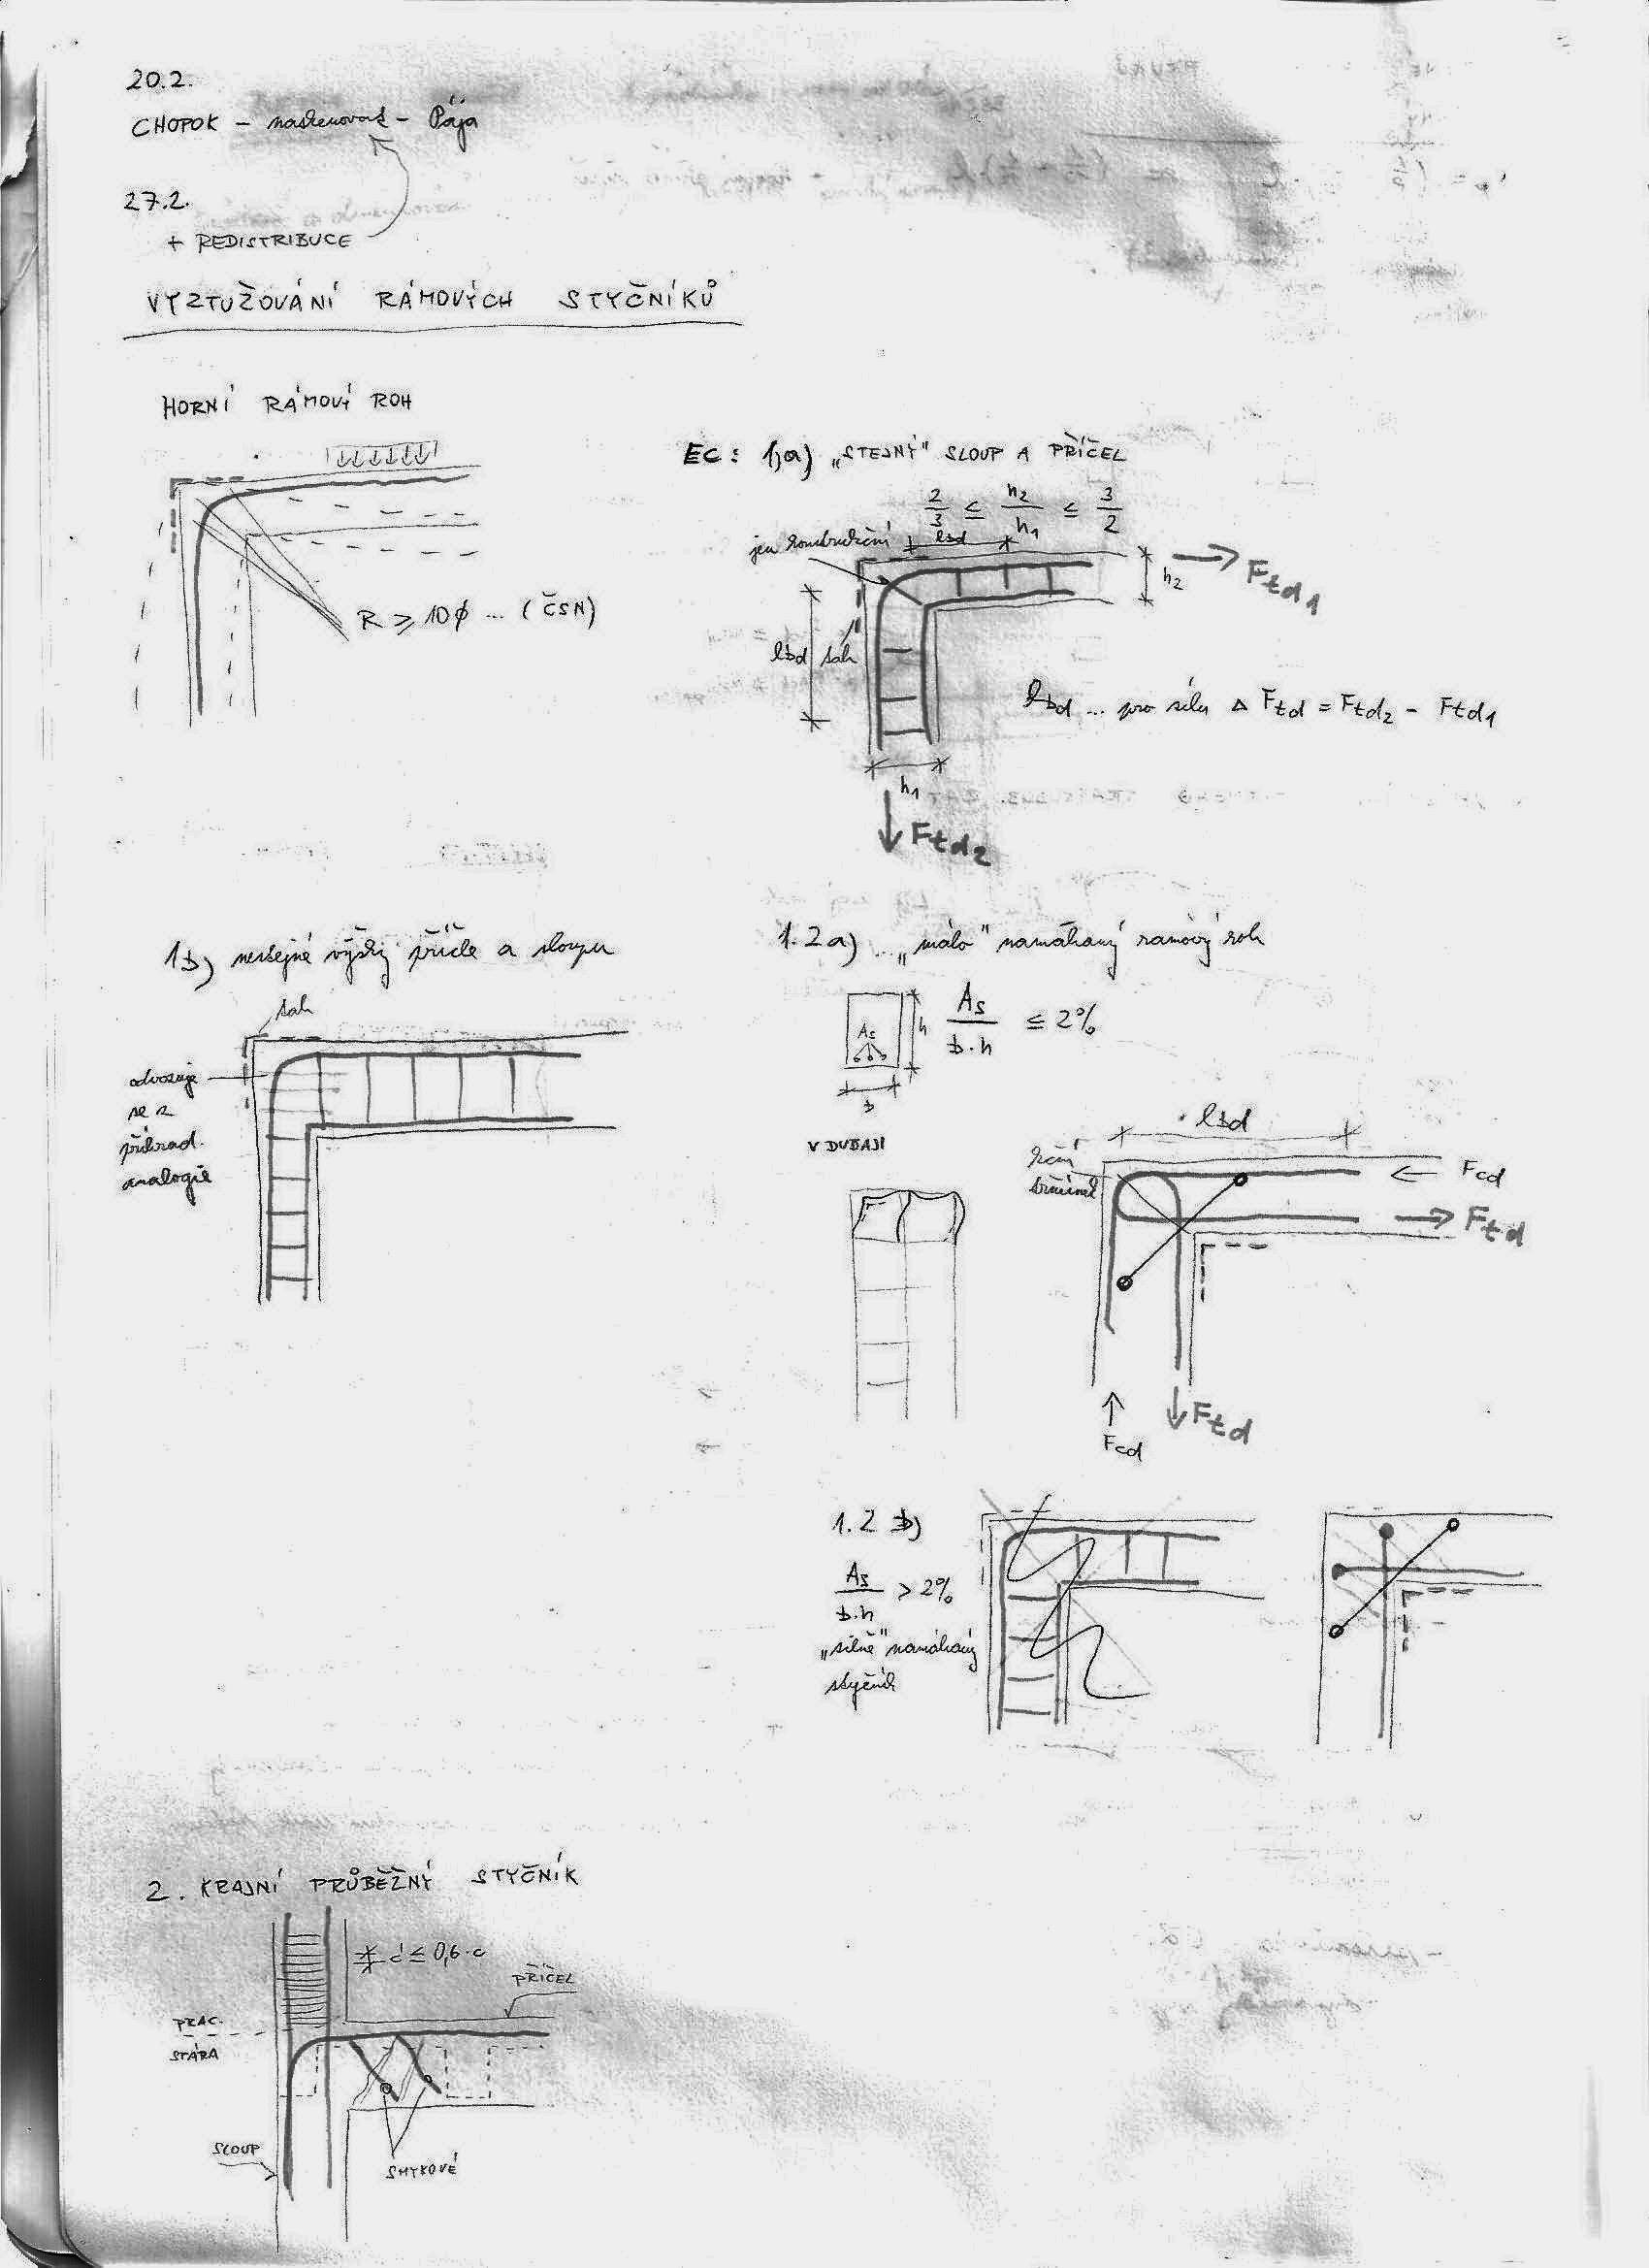 20.2.
CHOPOK – naskenovat – Pája
27.2.
+ REDISTRIBUCE
VYZTUŽOVÁNÍ RÁMOVÝCH STYČNÍKŮ
HORNÍ RÁMOVÝ ROH
R ≥ 10 ϕ ... (ČSN)
EC: 1,a) „STEJNÝ" SLOUP A PŘÍČEL
2/3 ≤ h2/h1 ≤ 3/2
jen konstrukční
lbd
h2
Ftd1
lbd
tah
h1
Ftd2
lbd ... pro sílu Δ Ftd = Ftd2 - Ftd1
1b) nestejné výšky příčle a sloupu
tah
odvozuje
se z
příhrad.
analogie
1.2a) ... „málo" namáhaný rámový roh
As
h
b
As/b.h ≤ 2%
V DUBAJI
lbd
Fcd
Ftd
Fcd
Ftd
1.2 b)
As/b.h > 2%
„silně" namáhaný
styčník
2. KRAJNÍ PRŮBĚŽNÝ STYČNÍK
d ≤ 0,6·c
PŘÍČEL
PRAC.
SPÁRA
SLOUP
SMYKOVÉ